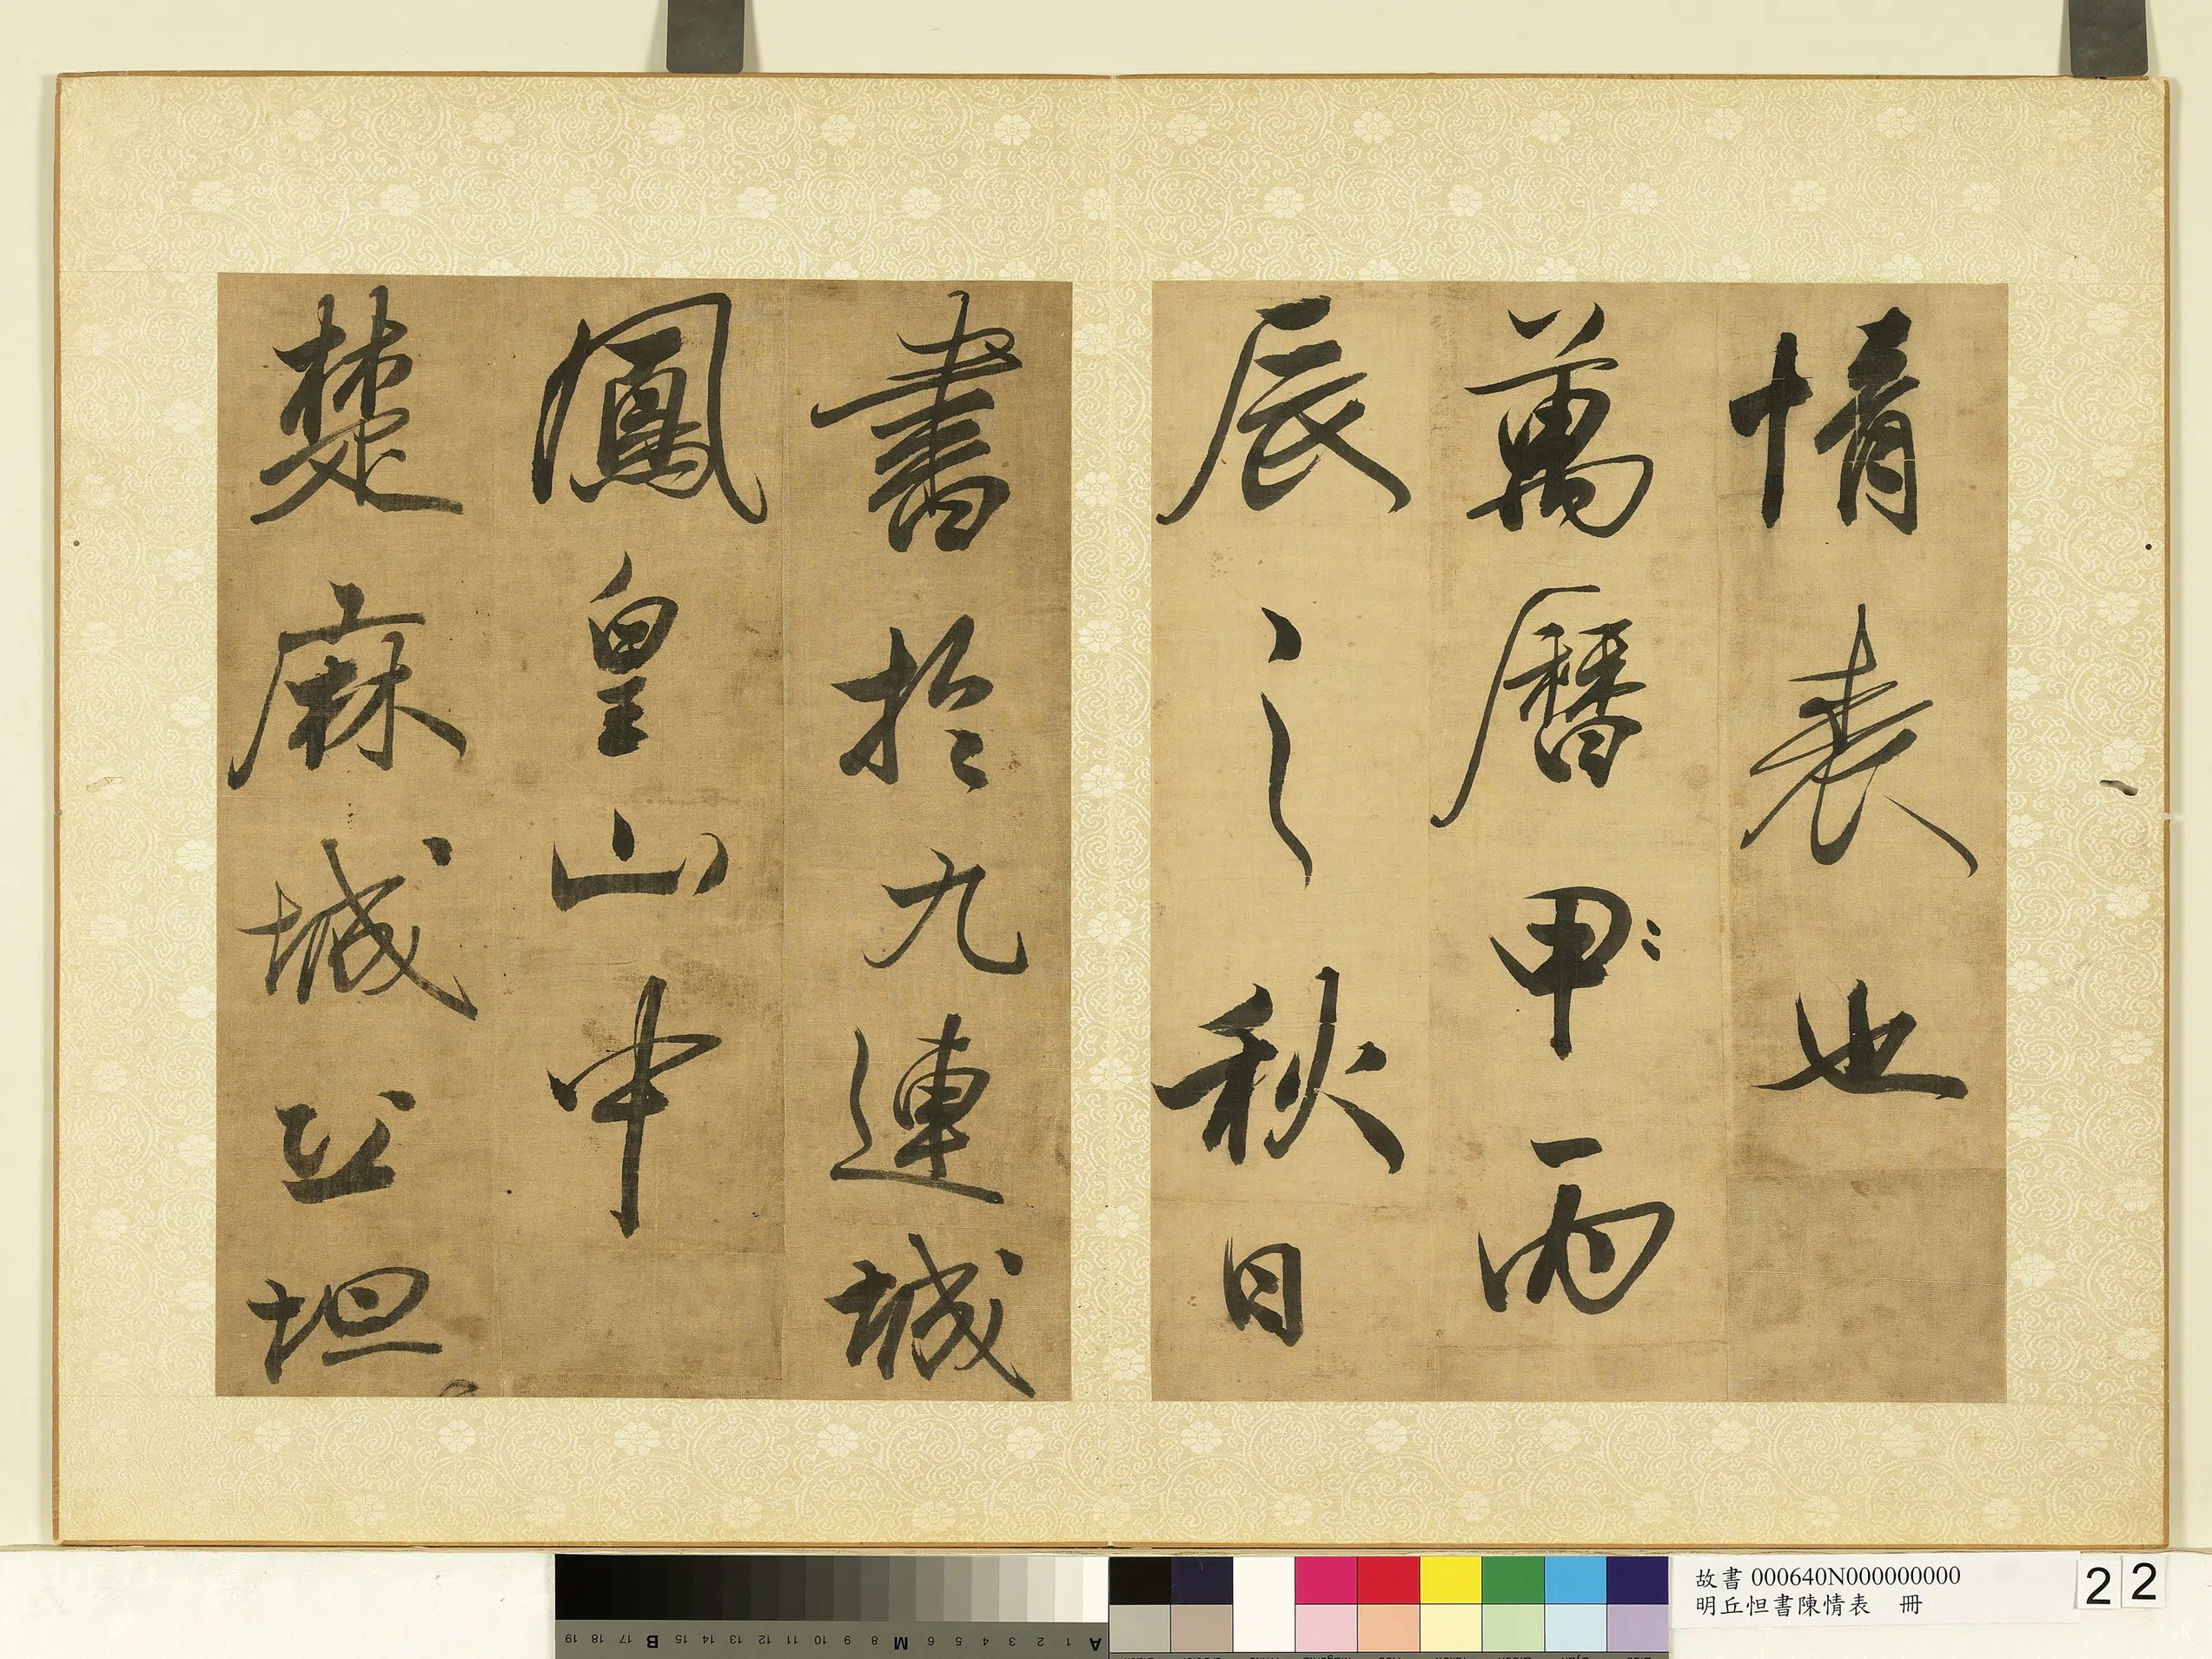 情表也
萬曆甲丙
辰之秋日
書於九連城
鳳皇山中
楚麻城丘坦
故書 000640N000000000
明丘怛書陳情表 冊
2 2
A 1 2 3 4 5 6 M 8 9 10 11 12 13 14 15 B 17 18 19